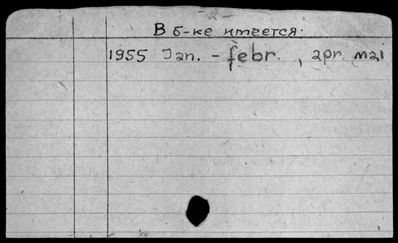 -2-
В б-ке имеется:
1955 Jan. - febr. , apr. mai